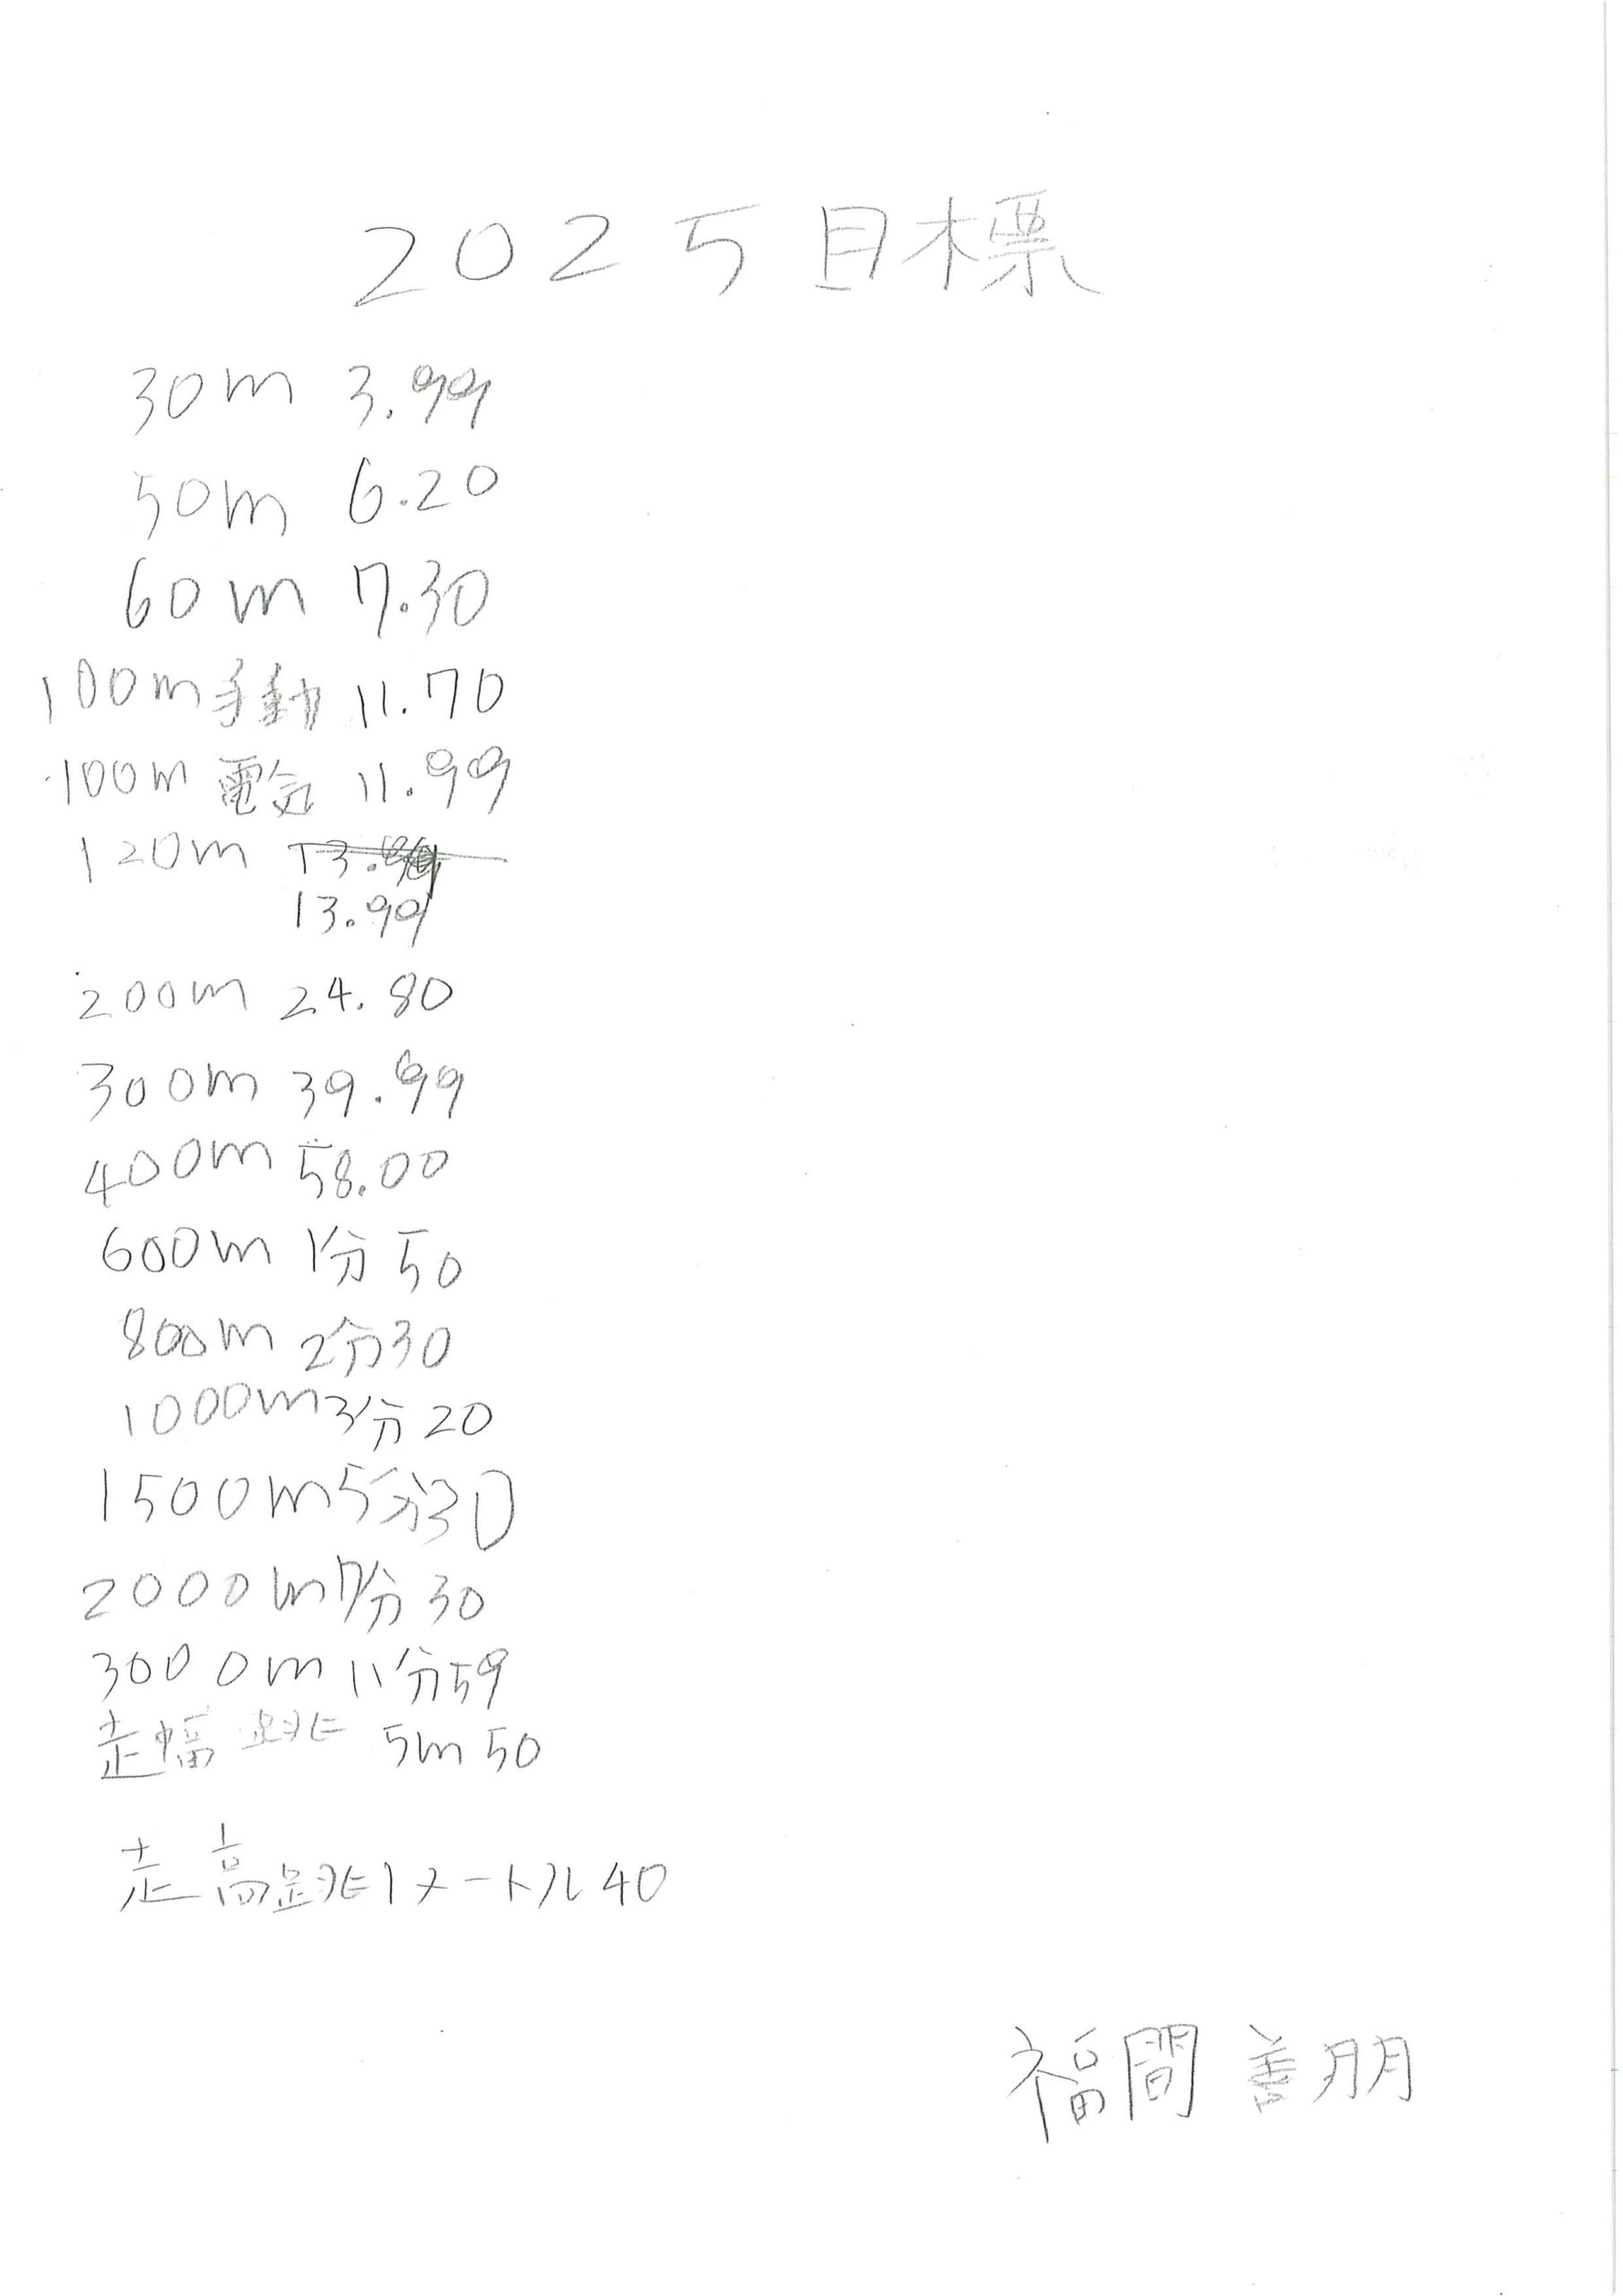 2025目標
30m 3.99
50m 6.20
60m 7.30
100m手動 11.70
100m 電気 11.99
120m
13.99
200m 24.80
300m 39.99
400m 58.00
600m 1分50
800m 2分30
1000m3分20
1500m5分30
2000m7分30
3000m 11分59
走幅跳 5m50
走高跳1メートル40
福間 善朋